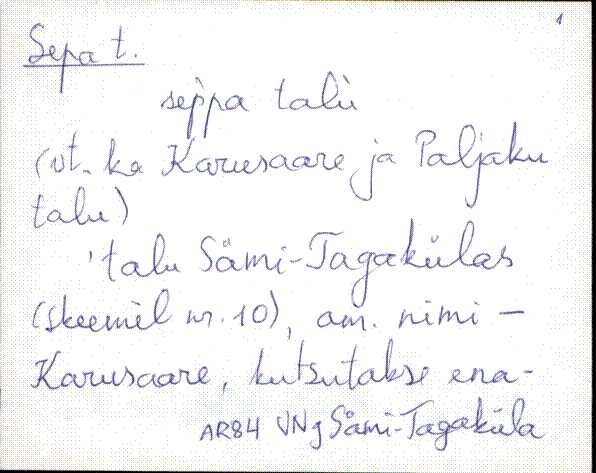 1
Sepa t.
seppa talu
(vt. ka Karusaare ja Paljaku
talu)
'talu Sämi-Tagakülas
(skeemil nr. 10), am. nimi –
Karusaare, kutsutakse ena-
AR84 VNg Sämi-Tagaküla